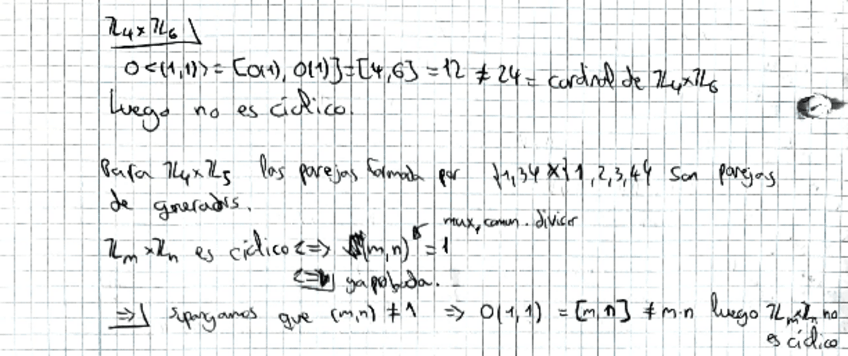 ℤ₄×ℤ₆
O<(1,1)> = [O(1), O(1)] = [4,6] = 12 ≠ 24 = cardinal de ℤ₄×ℤ₆
Luego no es cíclico.
Para ℤ₄×ℤ₅ las parejas formada por {1,3}×{1,2,3,4} son parejas
de generadores.
max, comun. divisor
ℤₘ×ℤₙ es cíclico <=> (m,n) = 1
<=| ya probada.
=>| Supongamos que (m,n) ≠ 1 => O(1,1) = [m,n] ≠ m·n luego ℤₘ×ℤₙ no
es cíclico